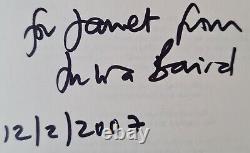 for Jamet from
Julia Baird
12/2/2007